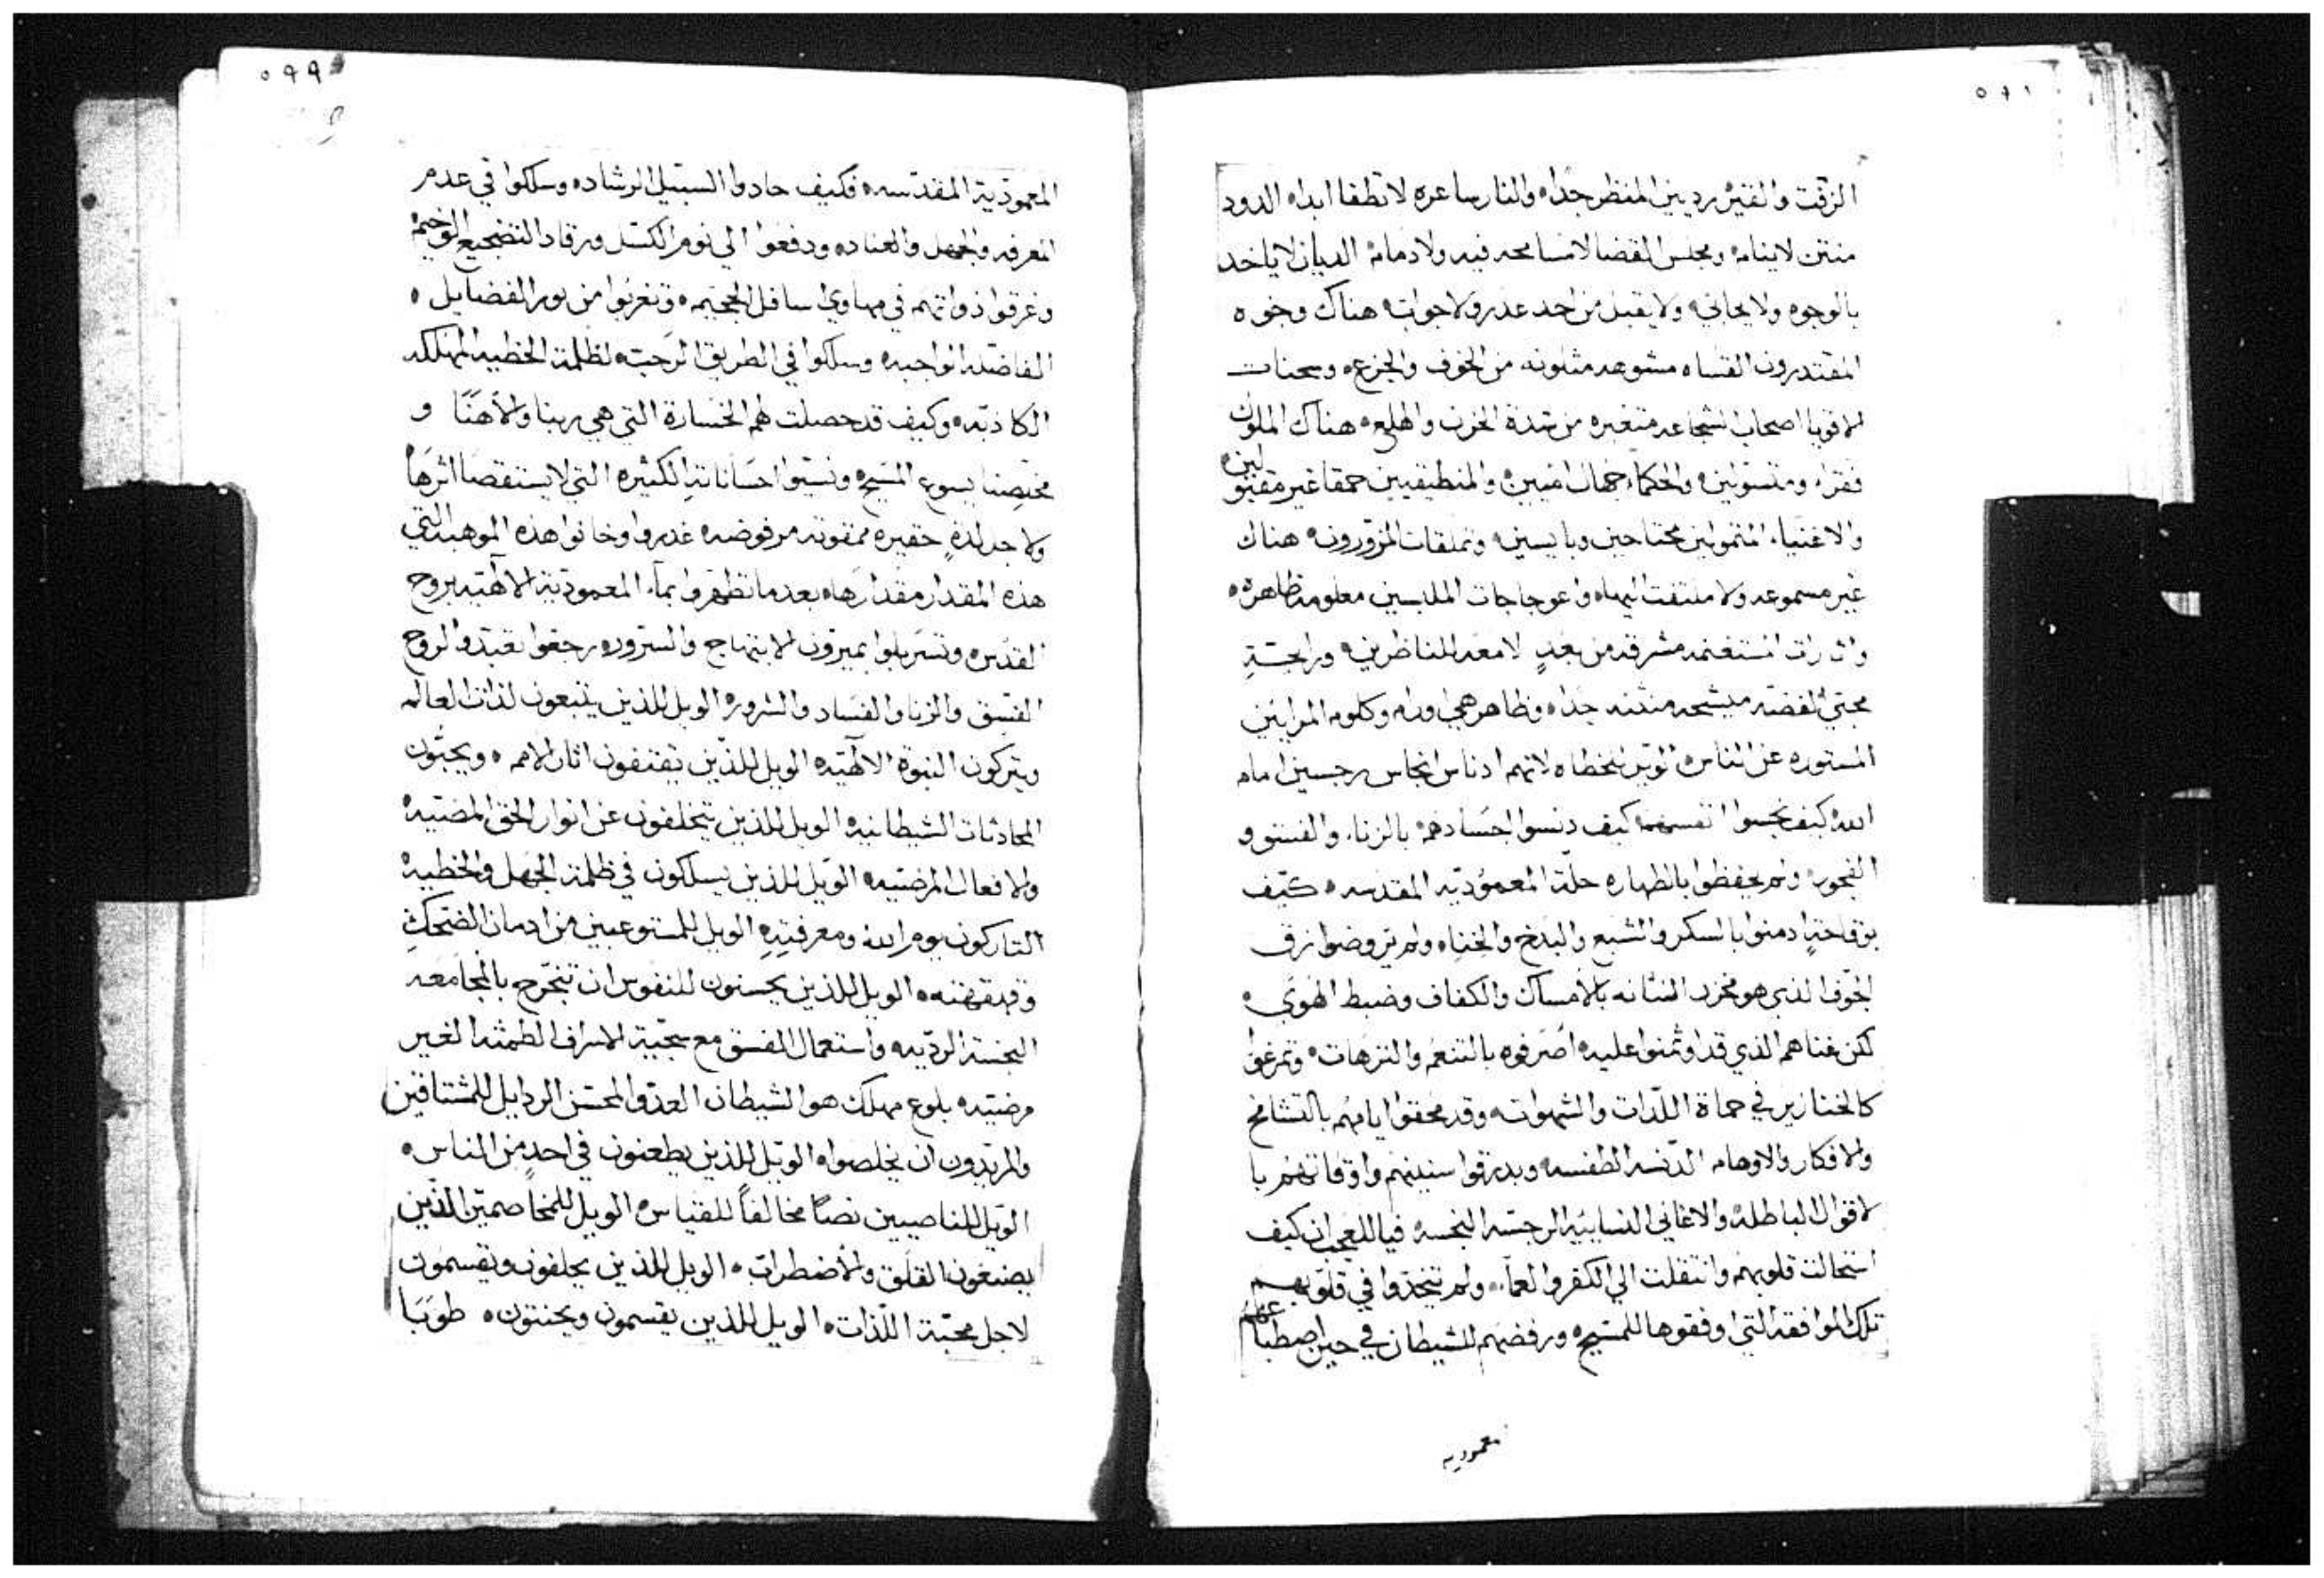 ٥٩٨
الزفت والقير رديين المنظر جداه والنار ساعره لا تطفا ابداه الدود
منتن لا ينامه ومجلس القضا لا مسامحه فيه ولا دمامه الديان لا ياخد
بالوجوه ولا يحابيه ولا يقبل من احد عدر ولا جوابه هناك وجوه
المقتدرون القساه مشوهه مثلونه من الخوف والجزعه وسحنات
الاقويا اصحاب الشجاعه متغيره من شدة الحزن والهلعه هناك الملوك
فقراء ومتسولينه والحكماء جهال اميينه والمنطيقيين حمقا غير مقبولينه
والاغنياء المتمولين محتاجين وبايسينه وتملقات المزورونه هناك
غير مسموعه ولا ملتفت اليهاه واعوجاجات الملبسين معلومه ظاهره ه
مشرفه من بعدٍ لامعه للناظرينه ورايحة
محبي الفضه منتنه جداه وظاهر وكلوم المرايين
المستوره عن الناسه الويل للخطاه لانهم ادناس انجاس رجسين امام
الله كيف نجسوا انفسهم كيف دنسوا اجسادهمه بالزناء والفسق و
الفجوره ولم يحفظوا بالطهاره حلة المعموديه المقدسه ه كيف
بوقاحةٍ ادمنوا بالسكر والشبع والبدخ والخناه ولم يروضوا نزق
الجوف الذي هو مخزن النتانه بالامساك والكفاف وضبط الهوي ه
لكن غناهم الذي قد اوتمنوا عليه اصرفوه بالتنعم والنزهات ه وتمرغوا
كالخنازير في حماة اللذات والشهواته وقد محقوا ايامهم بالتشامخ
والافكار والاوهام الدنسه الطفسه وبدرقوا سنينهم واوقاتهم با
لاقوال الباطله والاغاني النسايية الرجسه النجسه فيا للعجب ان كيف
استحالت قلوبهم وانتقلت الي الكفر والعماء ولم يتخدوا في قلوبهم
تلك الموافقه التي وفقوها للمسيح ه ورفضهم للشيطان في حين اصطباغهم
معموديه
٥٩٩
المعمودية المقدسه ه فكيف حادوا السبيل الرشاده وسلكوا في عدم
المعرفه والجهل والعناده ودفعوا الي نوم الكسل ورقاد التضجيع الوخيمه
وغرقوا ذواتهم في مهاوي اسافل الجحيم ه وتغربوا من نور الفضايل ه
الفاضله الواجبه وسلكوا في الطريق الرحبه لظلمة الخطيه المهلكه
الكادبه ه وكيف قد حصلت لهم الخسارة التي هي ربنا والاهنا و
مخلصنا يسوع المسيح ه ونسيوا احساناته الكثيره التي لا يستقصا اثرها
ولاجل لذةٍ حقيره ممقوته مرفوضه غدروا وخانوا هذه الموهبه التي
هذه المقدار مقدارها ه بعد ما تطهروا بماء المعمودية الالهيه بروح
القدس ه وتسربلوا بميرون الابتهاج والسروره رجعوا تعبدوا لروح
الفسق والزنا والفساد والشروره الويل للذين يتبعون لذات العالم
ويتركون النبوة الالهيه الويل للذين يقتفون اثار الامم ه ويحبون
المحادثات الشيطانيه الويل للذين يتخلفون عن انوار الحق المضيه
والافعال المرضيه ه الويل للذين يسلكون في ظلمة الجهل والخطيه
التاركون يوم الله ومعرفتهِ الويل للمستوعبين من ادمان الضحك
وقهقهته ه الويل للذين يحسنون للنفوس ان تنجرح بالمجامعه
النجسة الرديه ه واستعمال الفسق مع سجية الاسراف الطمثه الغير
مرضيه ه بلوع مهلك هو الشيطان العدو المحسن الردايل للمشتاقين
والمريدون ان يخلصواه الويل للذين يطعنون في احدٍ من الناس ه
الويل للناصبين نصبًا مخالفاً للقياس ه الويل للمخاصمين الذين
يصنعون القلق والاضطراب ه الويل للذين يحلفون ويقسمون
لاجل محبة اللذات ه الويل للذين يقسمون ويحنتون ه طوبا